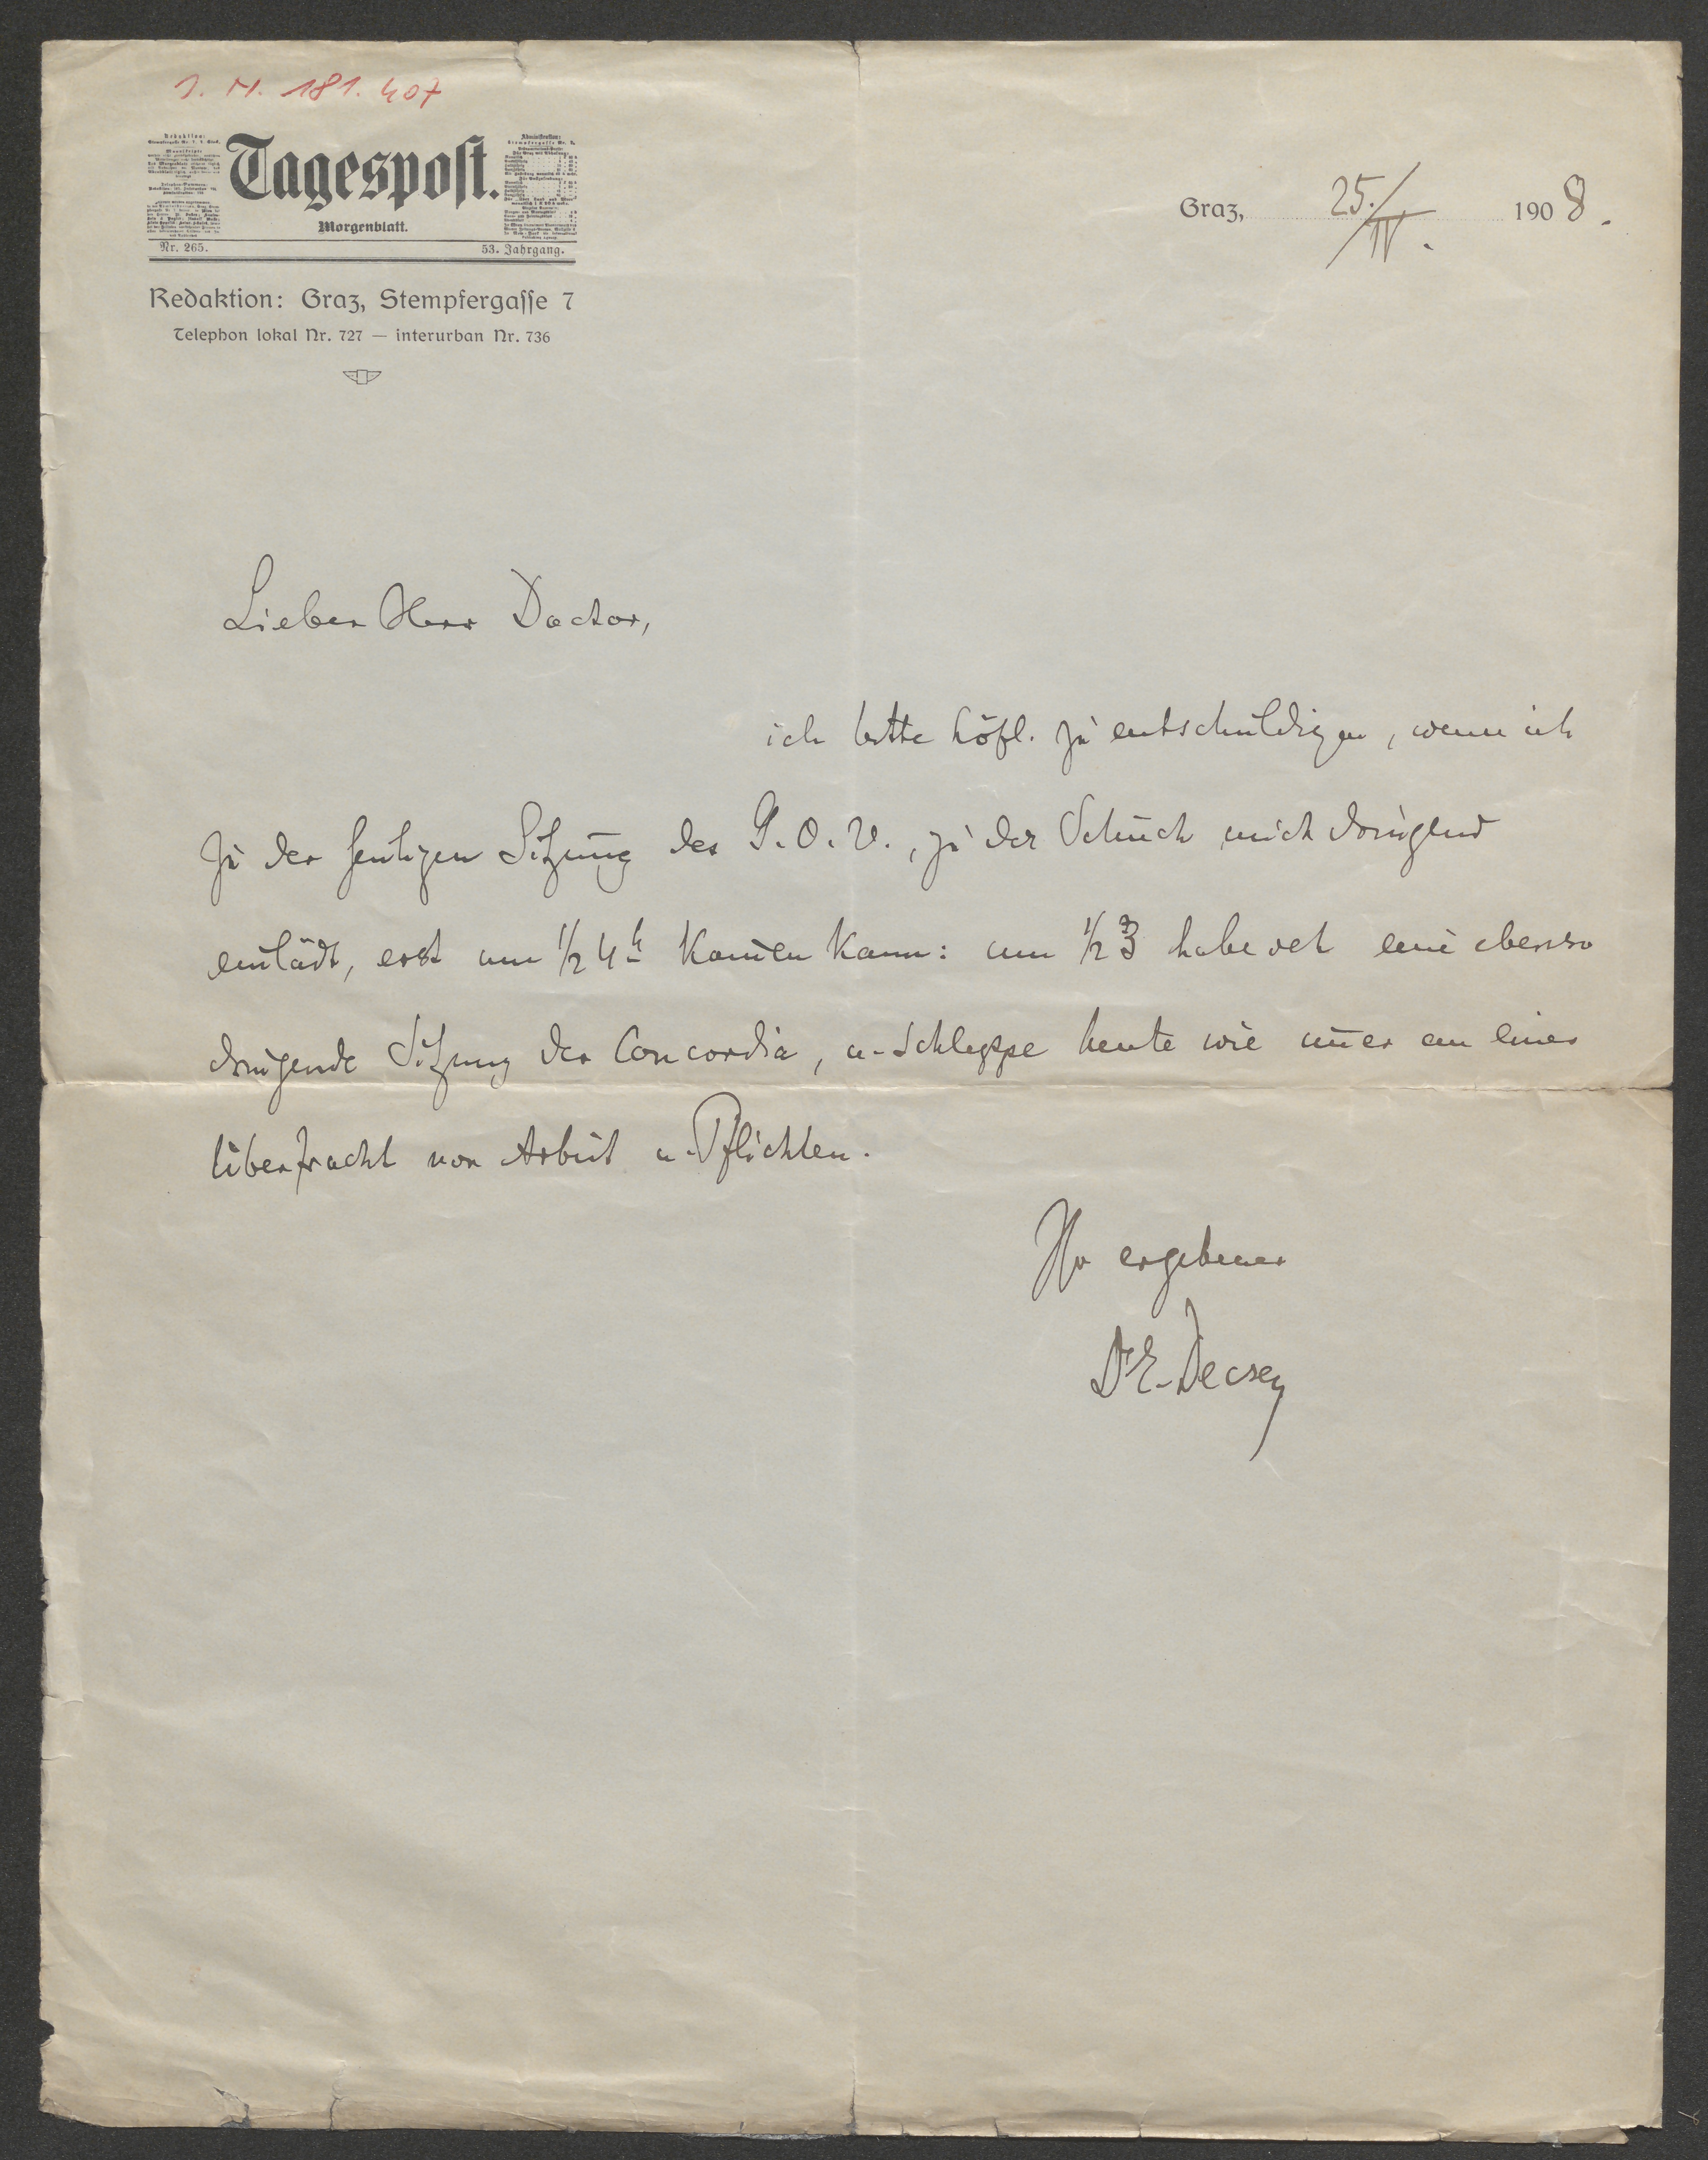 I. N. 181.407
Tagespost.
Morgenblatt.
Nr. 265. 53. Jahrgang.
Redaktion: Graz, Stempfergasse 7
Telephon lokal Nr. 727 — interurban Nr. 736
Graz, 25./IV. 1908.
Lieber Herr Doctor,
ich bitte höfl. zu entschuldigen, wenn ich
zu der heutigen Sitzung des P. O. V., zu der Schuch mich dringend
einlädt, erst um ½ 4 h kom̄en kann: um ½ 3 habe ich eine ebenso
dringende Sitzung der Concordia, u. schleppe heute wie im̄er an einer
Überfracht von Arbeit u. Pflichten.
Ihr ergebener
Dr E. Decsey